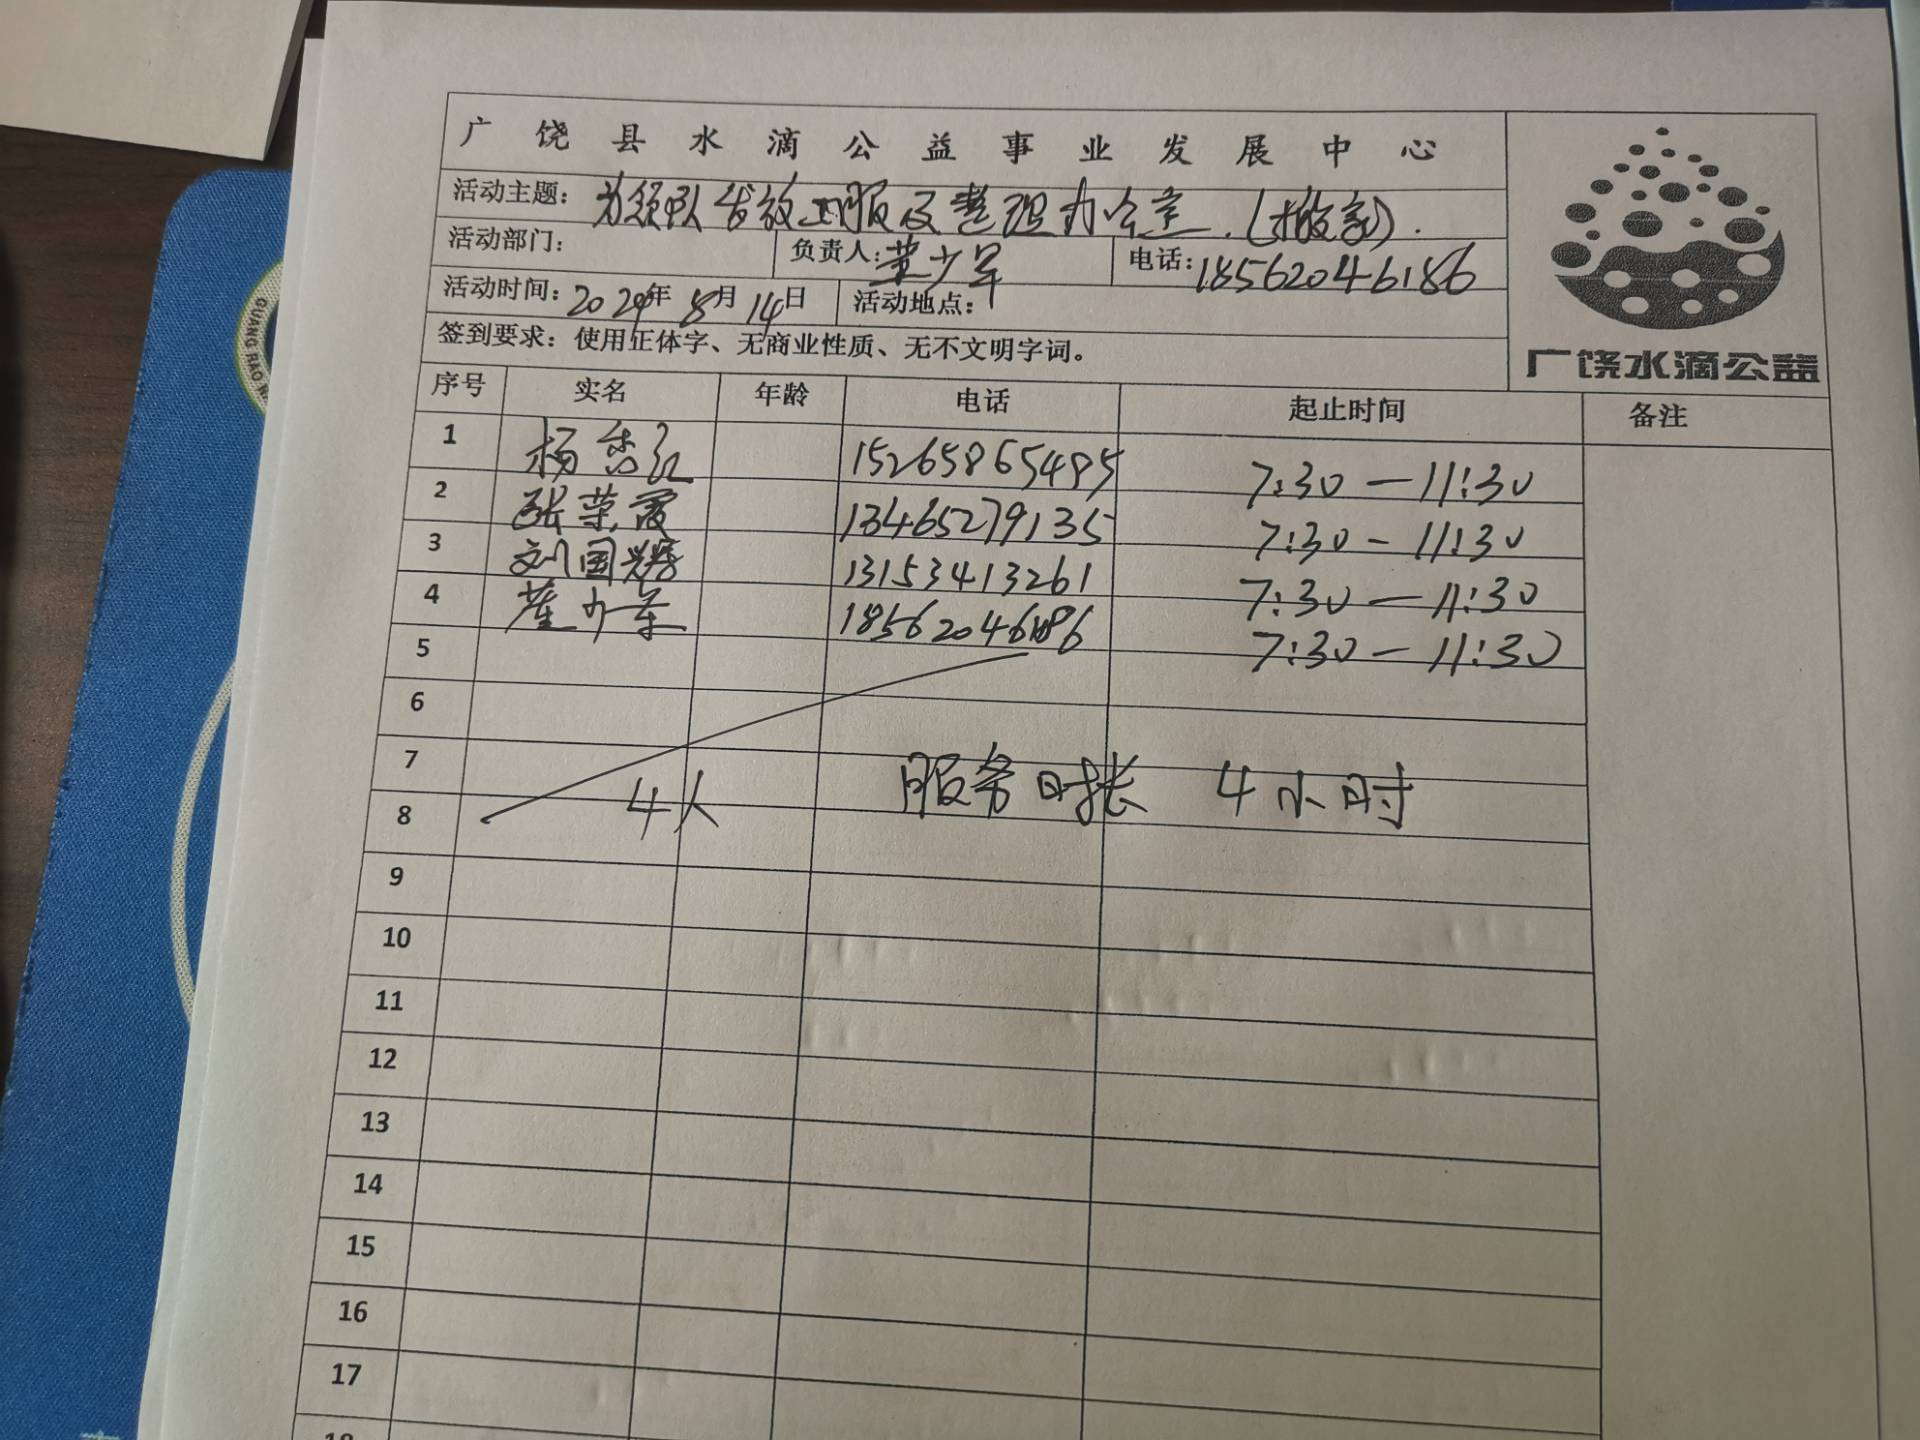 广饶县水滴公益事业发展中心
活动主题：为领队发放工服及整理办公室.(搬家).
活动部门： 负责人：董少军 电话：18562046186
活动时间：2024年8月14日 活动地点：
签到要求：使用正体字、无商业性质、无不文明字词。
广饶水滴公益
序号 实名 年龄 电话 起止时间 备注
1 杨杏红 15265865495 7:30—11:30
2 张荣霞 13465279135 7:30-11:30
3 刘国 13153413261 7:30—11:30
4 董少军 18562046186 7:30—11:30
5
6
7
8 4人 服务时长 4小时
9
10
11
12
13
14
15
16
17
18
GUANG RAO